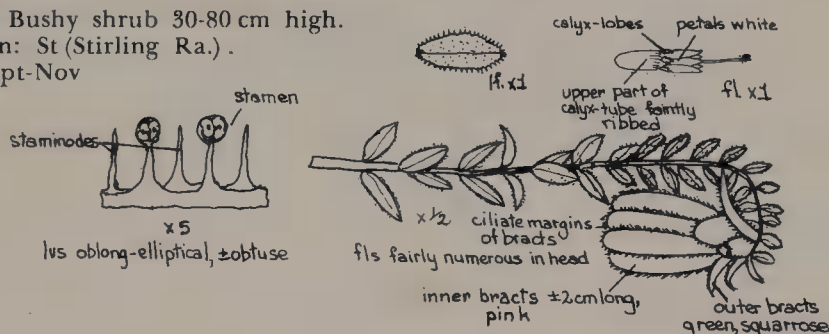 Bushy shrub 30-80 cm high.
n: St (Stirling Ra.).
pt-Nov
calyx-lobes
petals white
lf. x1
upper part of
calyx-tube faintly
ribbed
fl x1
stamen
staminodes
x 5
lvs oblong-elliptical, ±obtuse
x ½
ciliate margins
of bracts
fls fairly numerous in head
inner bracts ±2cm long,
pink
outer bracts
green, squarrose